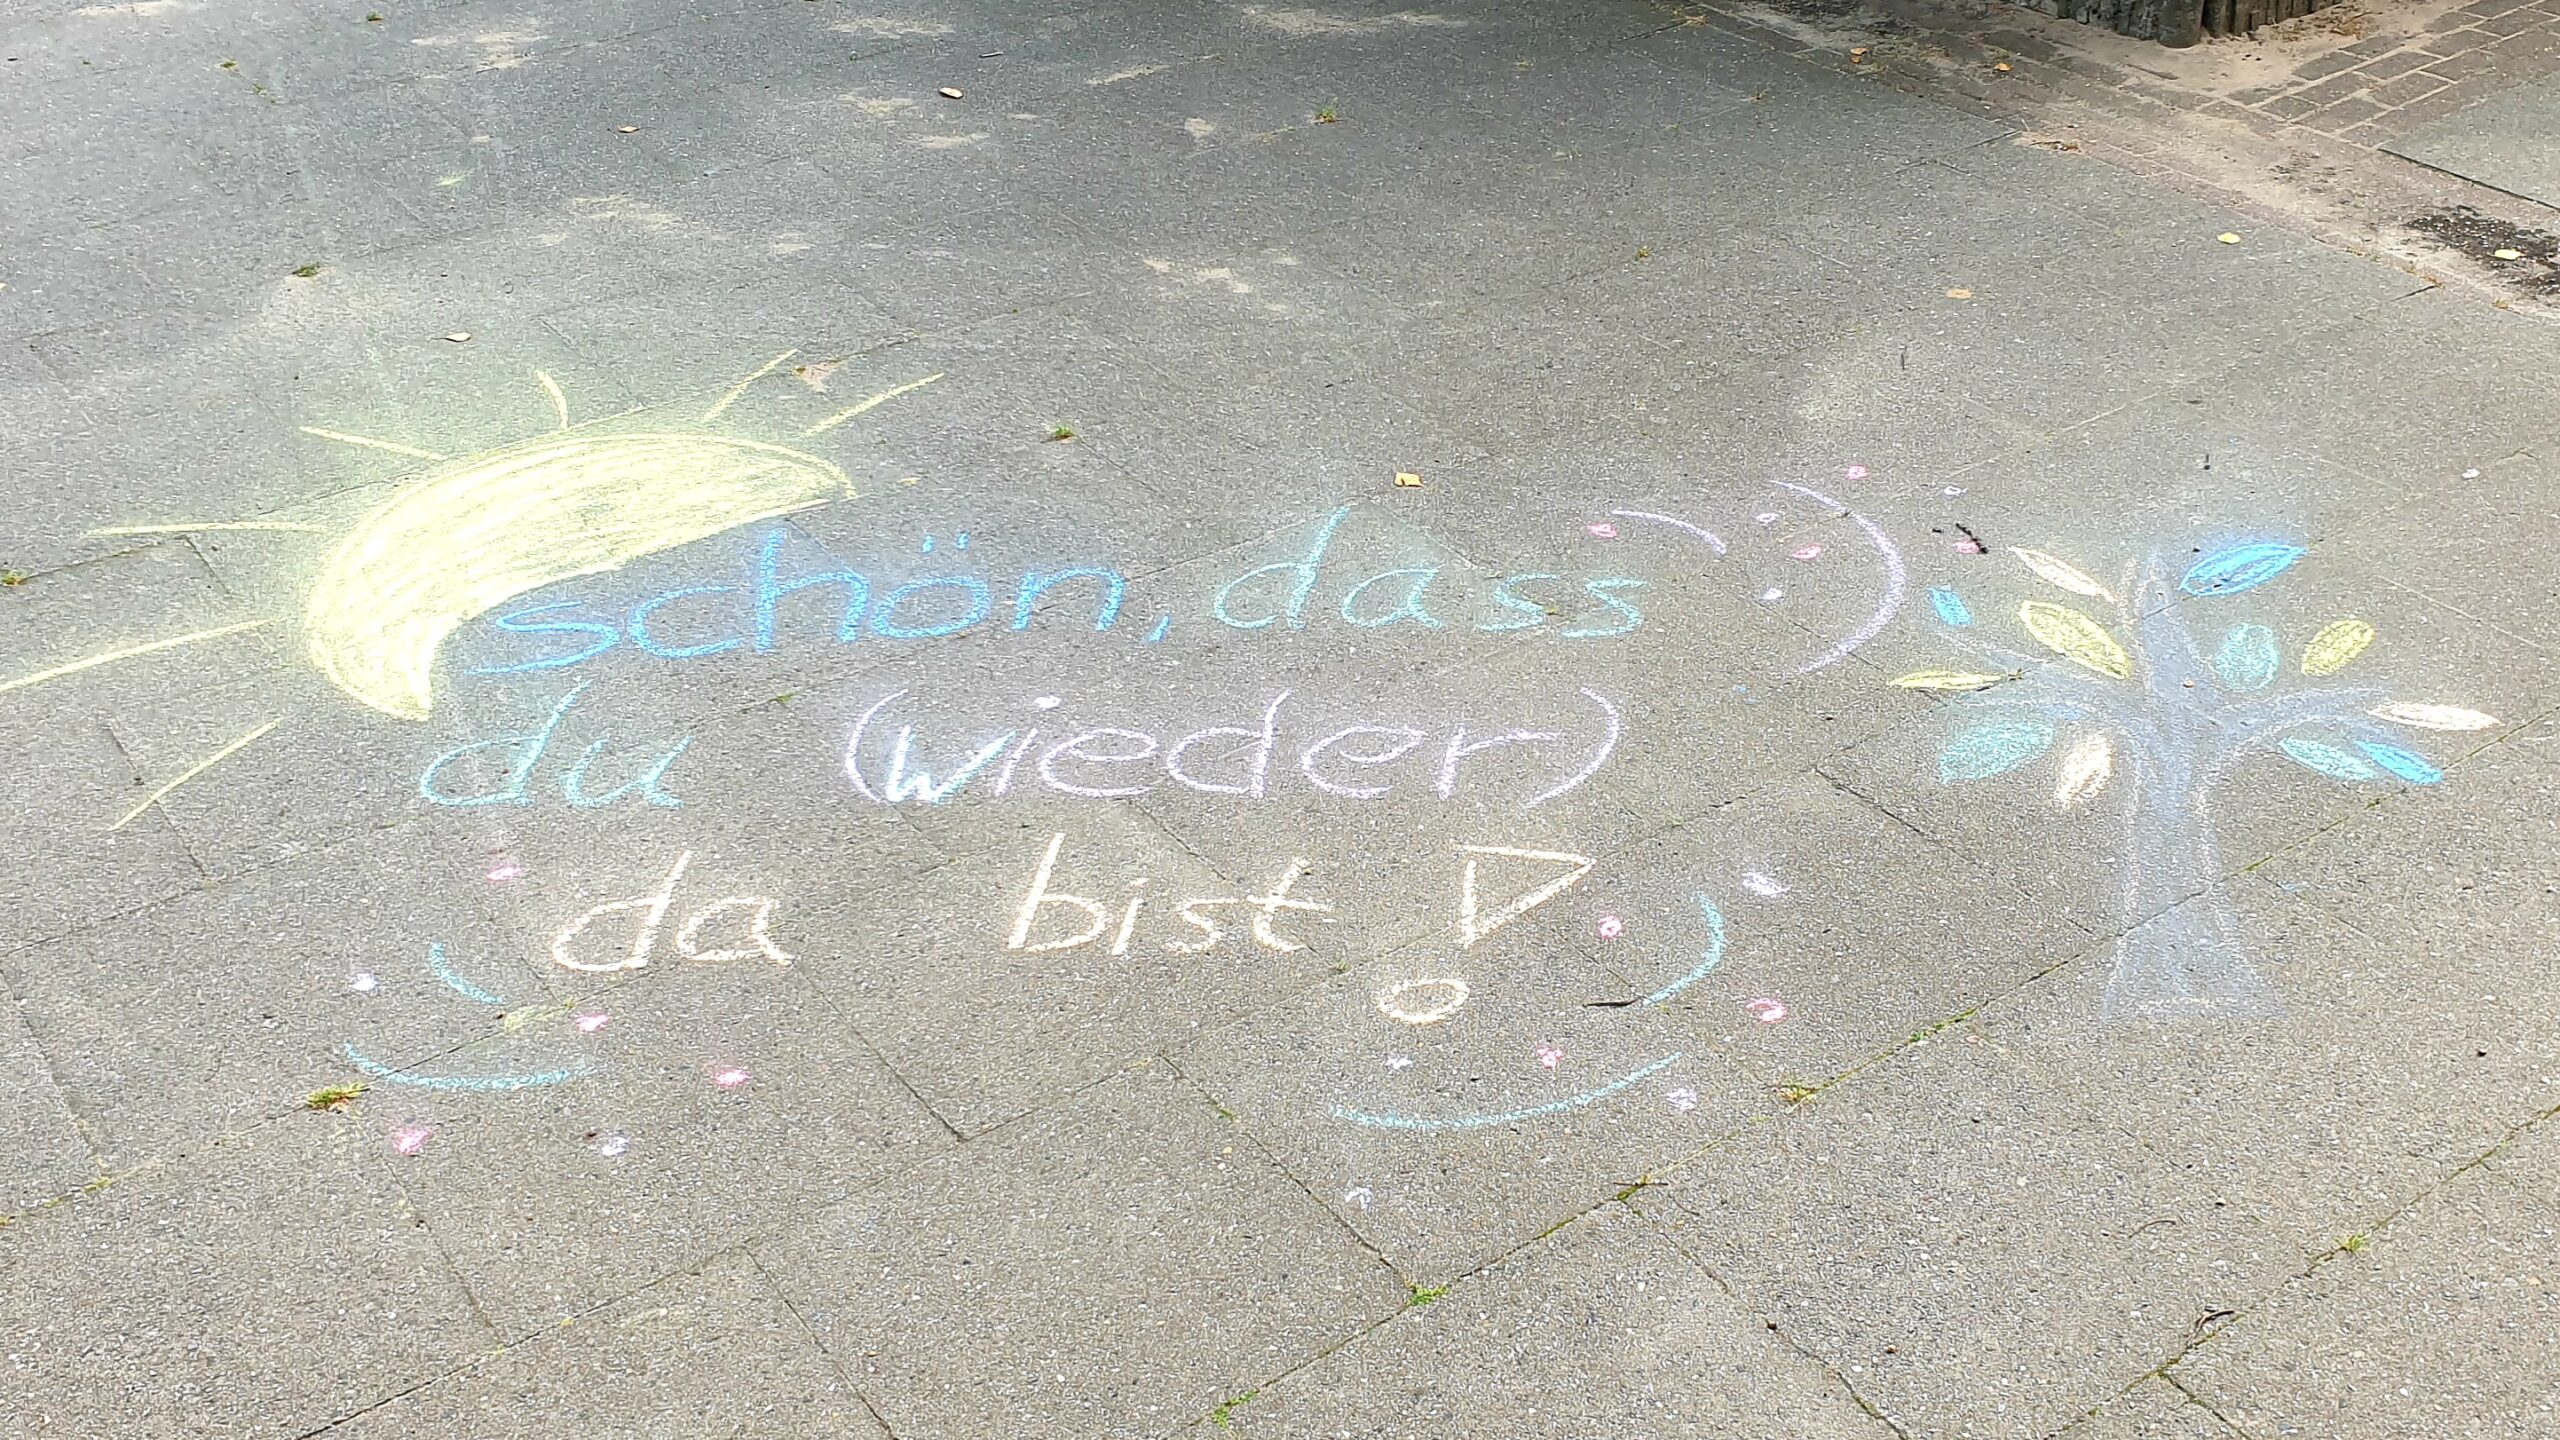 schön, dass
du (wieder)
da bist!